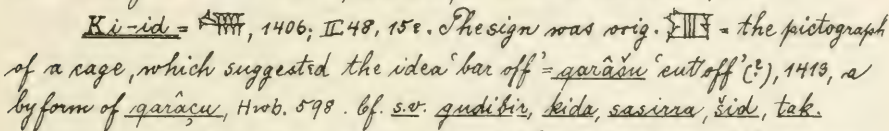 Ki-id = 𒋃, 1406; II 48, 15e. The sign was orig. = the pictograph
of a cage, which suggested the idea 'bar off' = qarâšu 'cut off' (?), 1413, a
byform of qarâçu, Hwb. 598. Cf. s.v. gudibir, kida, sasirra, šid, tak.